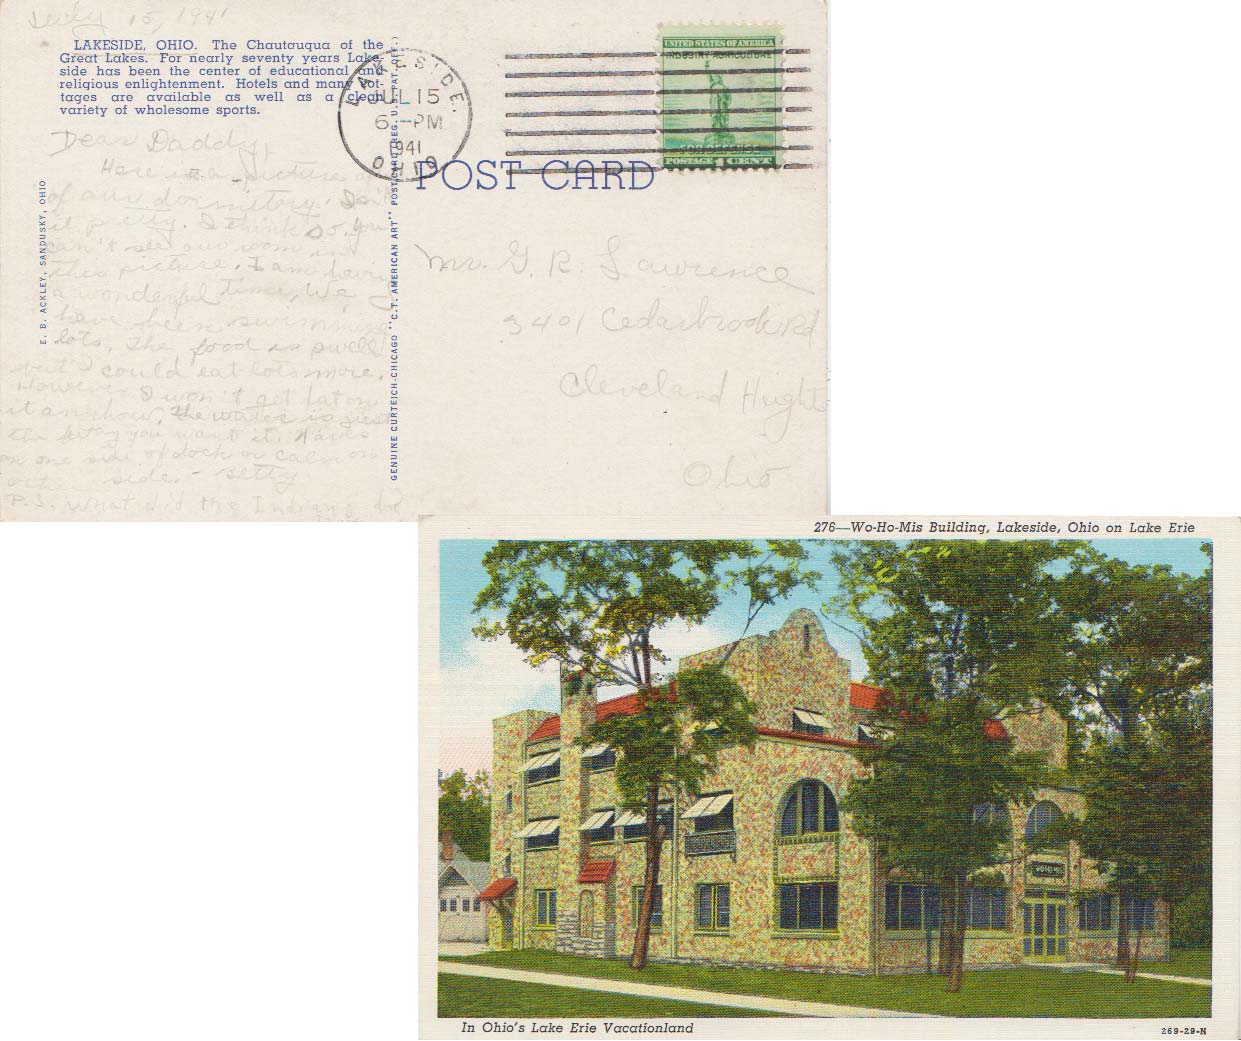 July 15, 1941
LAKESIDE, OHIO. The Chautauqua of the
Great Lakes. For nearly seventy years Lake-
side has been the center of educational and
religious enlightenment. Hotels and many cot-
tages are available as well as a clean
variety of wholesome sports.
Dear Daddy,
Here is a picture
of our dormitory. Isn't
it pretty. I think so. You
can't see our room in
this picture. I am having
a wonderful time. We
have been swimming
lots. The food is swell
but I could eat lots more.
However I won't get fat on
it anyhow. The water is just
the way you want it. Waves
on one side of dock or calm on
other side. - Betty
P.S. What did the Indians do
E. B. ACKLEY, SANDUSKY, OHIO
GENUINE CURTEICH-CHICAGO "C.T. AMERICAN ART" POST CARD (REG. U.S. PAT. OFF.)
LAKESIDE,
JUL 15
6 - PM
1941
OHIO
UNITED STATES OF AMERICA
INDUSTRY AGRICULTURE
FOR DEFENSE
POSTAGE 1 CENT
POST CARD
Mr. G. R. Lawrence
3401 Cedarbrook Rd
Cleveland Heights
Ohio
276—Wo-Ho-Mis Building, Lakeside, Ohio on Lake Erie
WO-HO-MIS
In Ohio's Lake Erie Vacationland
269-29-N